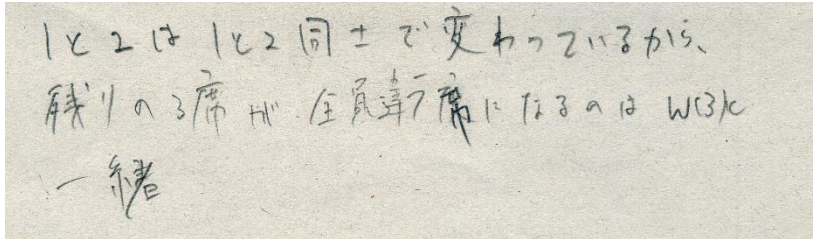 1と2は1と2同士で変わっているから、
残りの3席が全員違う席になるのはW(3)と
一緒